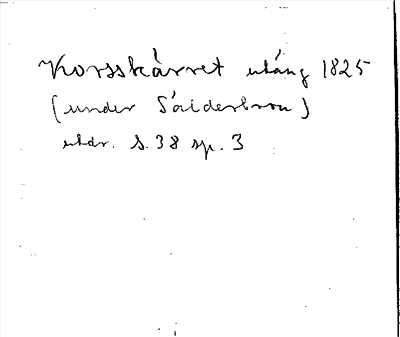 Korsskärret utäng 1825
(under Säiderbron)
utdr. s. 38 sp. 3